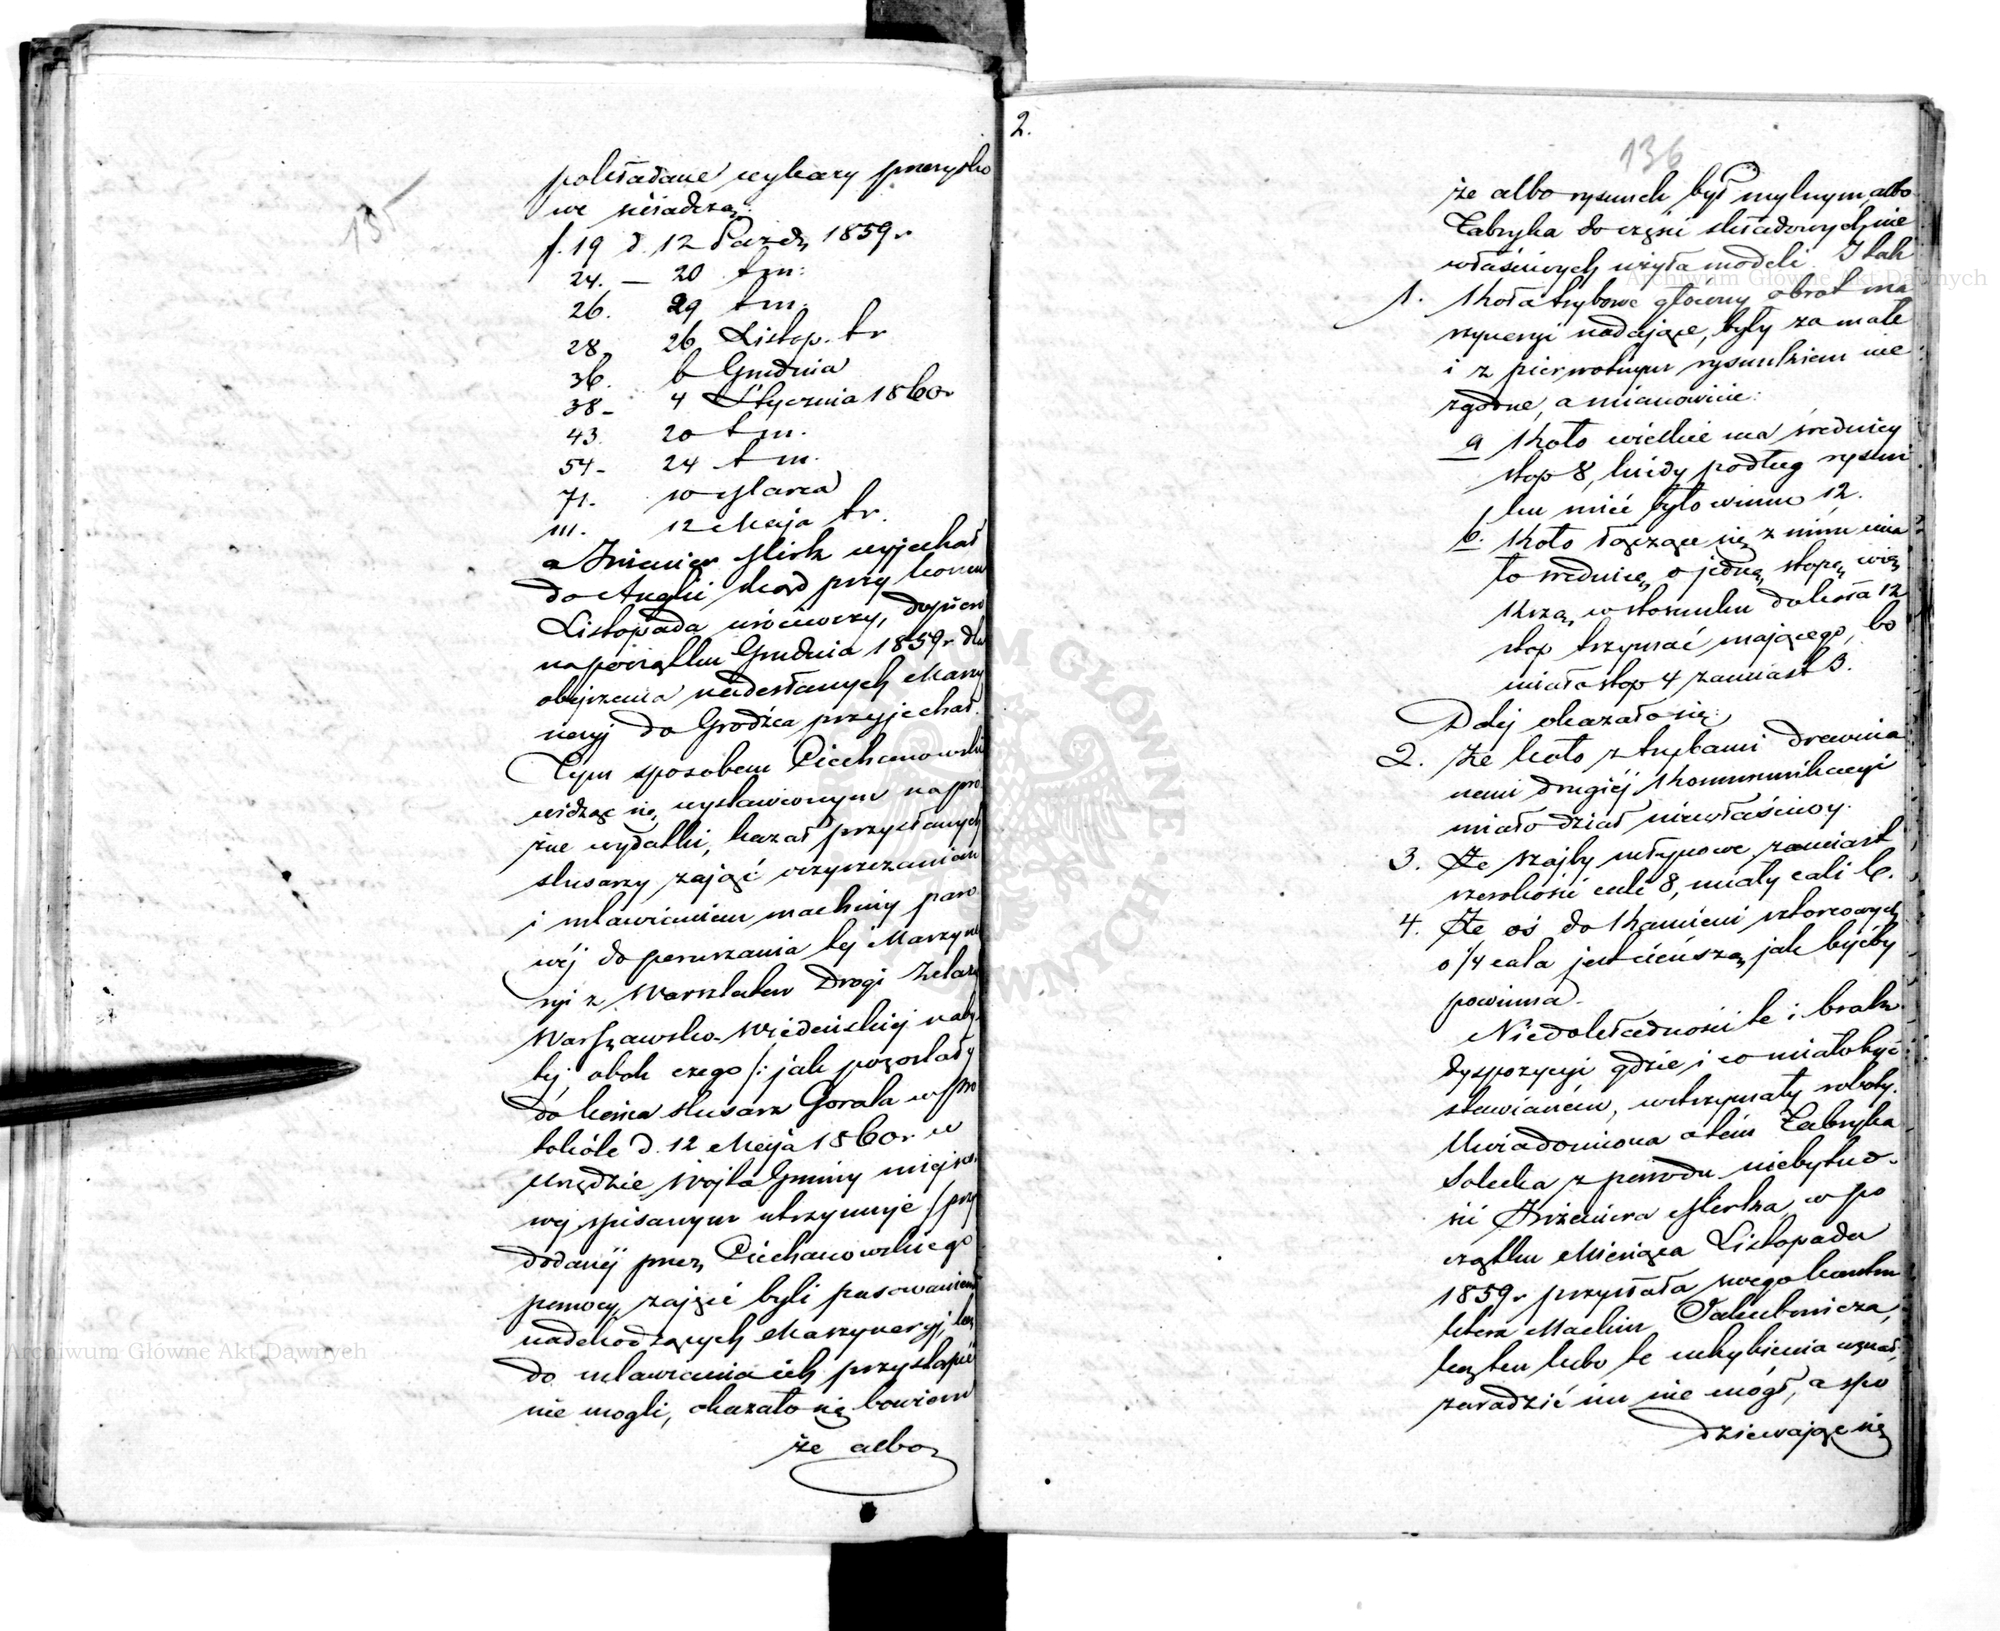 135
pokładane wykazy przesyłko
we świadczą:
f. 19 d. 12 Paźdz. 1859 r
24. — 20 t.m:
26. 29 t.m.
28 26 Listop. t.r
36. 6 Grudnia
38 - 4 Stycznia 1860 r
43. 20 t.m.
54 - 24 t.m.
71 - 10 Marca
111. 12 Maja t.r.
a Inżenier Merk wyjechał
do Anglii skąd przy końcu
Listopada wróciwszy, dopiero
na początku Grudnia 1859 r dla
obejrzenia nadesłanych Maszy
neryj do Grodźca przyjechał.
Tym sposobem Ciechanowski
widząc się wystawionym na pró
żne wydatki, kazał przysłanych
ślusarzy zająć oczyszczaniem
i wstawieniem machiny paro
wéj do poruszania téj Maszyne
ryi z Warsztatów Drogi Żelazn
Warszawsko-Wiedeńskiéj naby
téj, obok czego /: jak pozostały
do końca ślusarz Gorala w pro
tokóle d. 12 Maja 1860 r w
Urzędzie Wójta Gminy miejsco
wéj spisanym utrzymuje / przy
dodanéj przez Ciechanowskiego
pomocy, zajęci byli pasowaniem
nadchodzących Maszyneryj, lecz
do wstawiania ich przystąpić
nie mogli, okazało się bowiem
że albo
2.
136
że albo rysunek był mylnym, albo
Fabryka do części składowych nie
właściwych użyła modeli. I tak
1. Koła trybowe główny obrot ma
szyneryi nadające, były za małe
i z pierwotnym rysunkiem nie
zgodne, a mianowicie:
a Koło wielkie ma średnicy
stop 8, kiedy podług rysun
ku mieć było winno 12.
b. Koło łączące się z nim mia
ło średnicę o jedną stopę więk
kszą, w stosunku do koła 12
stop trzymać mającego, bo
miało stop 4 zamiast 3.
Daléj okazało się:
2. Że koło z trybami drewnia
nemi drugiéj Kommunikacyi
miało dział niewłaściwy.
3. Że szajby młynowe, zamiast
szerokości cali 8, miały cali 6.
4. Że oś do Kamieni sztorcowych
o 1/4 cala jest cieńszą jak byćby
powinna.
Niedokładności te i brak
dyspozycyi gdzie i co miało być
stawianém, wstrzymały roboty.
Uwiadomiona o tém Fabryka
Solecka z powodu niebytno-
ści Inżeniera Merka, w po
czątku Miesiąca Listopada
1859 r przysłała swego konstru
ktora Machin Jakubowicza,
lecz ten lubo te uchybienia uznał,
zaradzić im nie mógł, a spo
dziewając się
Archiwum Główne Akt Dawnych
Archiwum Główne Akt Dawnych